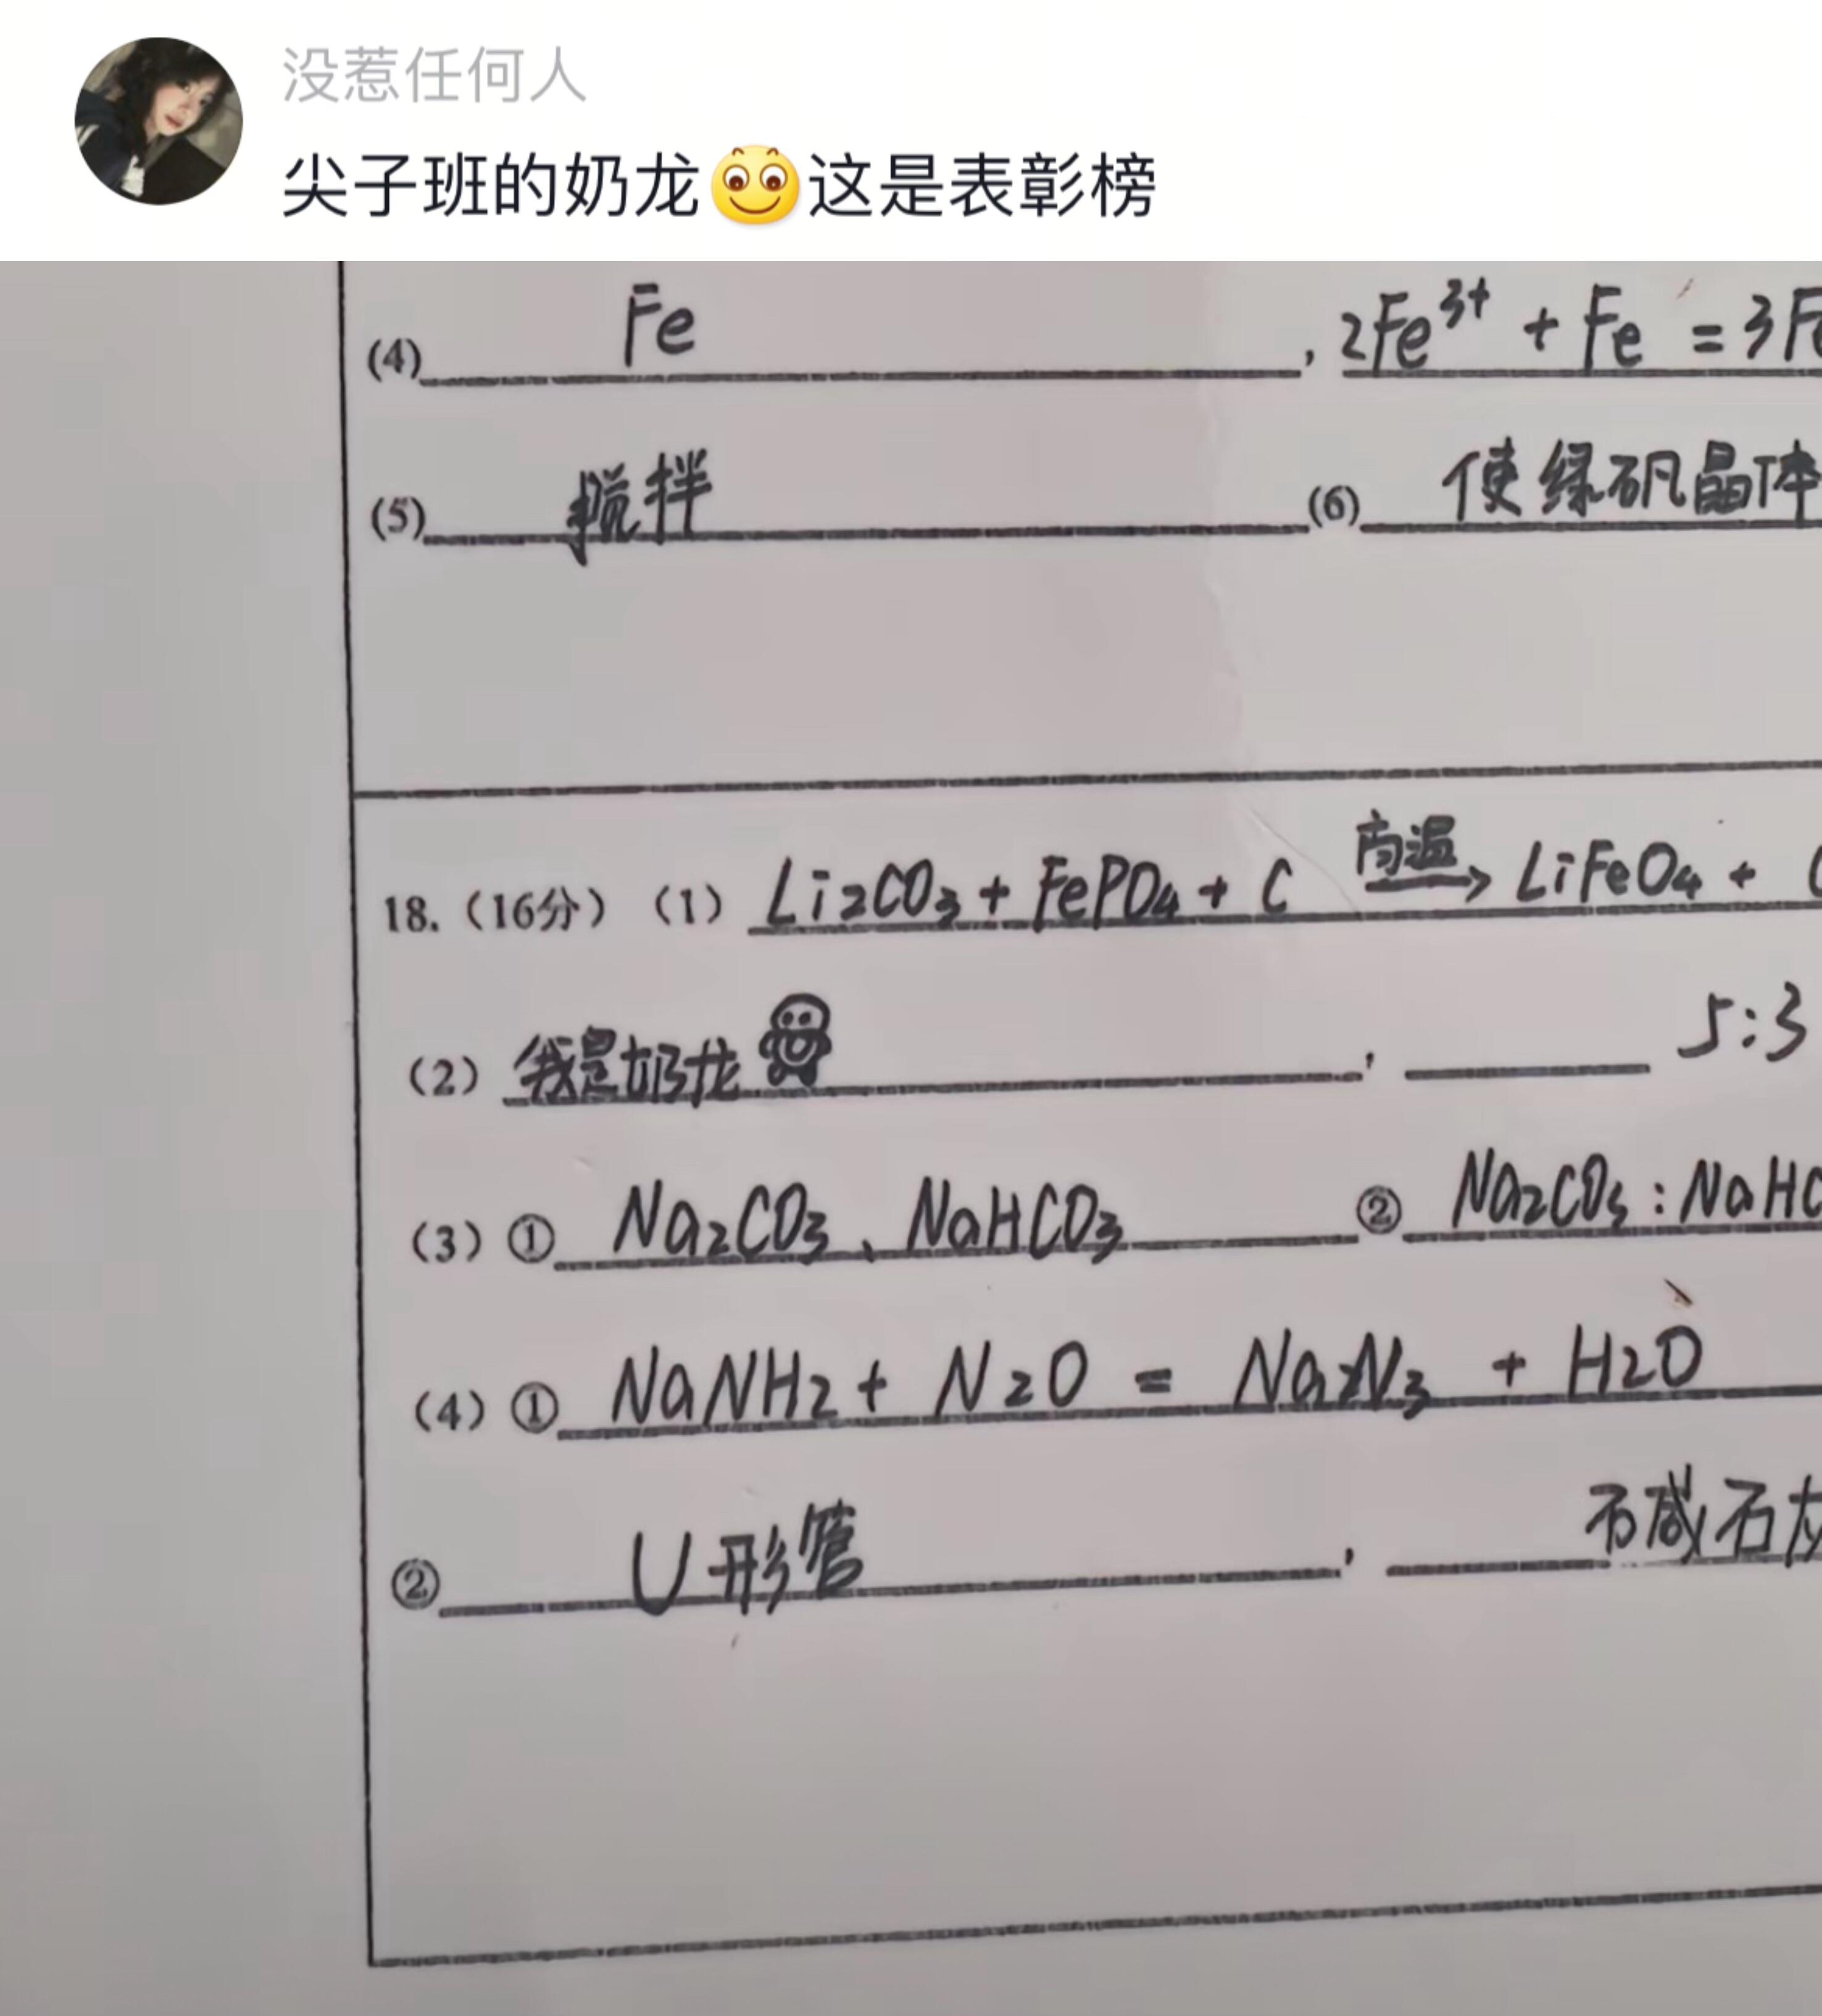 没惹任何人
尖子班的奶龙这是表彰榜
(4) Fe , 2Fe³⁺ + Fe = 3Fe
(5) 搅拌 (6) 使绿矾晶体
18.（16分）（1） Li₂CO₃ + FePO₄ + C 高温→ LiFeO₄ +
（2） 我是奶龙 , 5:3
（3）① Na₂CO₃、NaHCO₃ ② Na₂CO₃ : NaHC
（4）① NaNH₂ + N₂O = NaN₃ + H₂O
② U形管 , 石